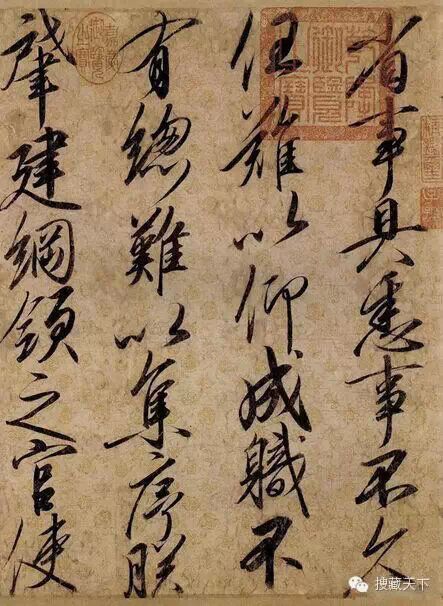 省事具悉事不久
任難以仰成職不
有總難以集序朕
肇建綱領之官使
搜藏天下